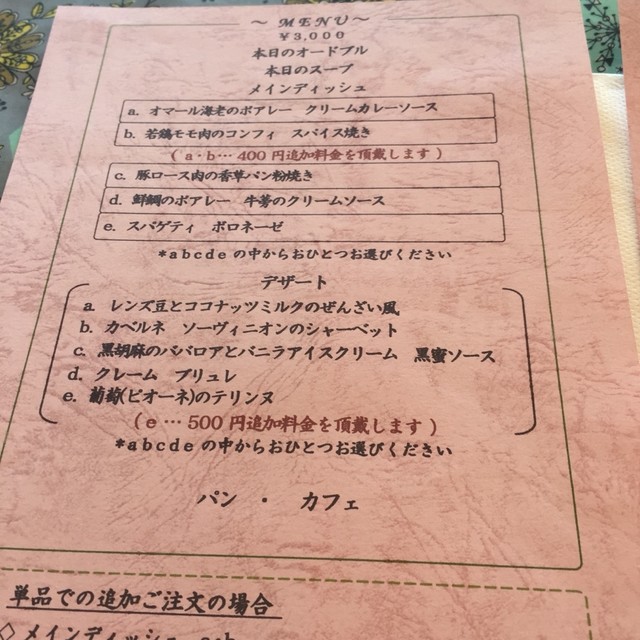 ～ MENU～
￥3,000
本日のオードブル
本日のスープ
メインディッシュ
a. オマール海老のポアレー　クリームカレーソース
b. 若鶏モモ肉のコンフィ　スパイス焼き
( a・b… 400 円追加料金を頂戴します )
c. 豚ロース肉の香草パン粉焼き
d. 鮮鯛のポアレー　牛蒡のクリームソース
e. スパゲティ　ボロネーゼ
*abcde の中からおひとつお選びください
デザート
a. レンズ豆とココナッツミルクのぜんざい風
b. カベルネ　ソーヴィニオンのシャーベット
c. 黒胡麻のババロアとバニラアイスクリーム　黒蜜ソース
d. クレーム　ブリュレ
e. 葡萄(ピオーネ)のテリンヌ
( e … 500 円追加料金を頂戴します )
*abcde の中からおひとつお選びください
パン ・ カフェ
単品での追加ご注文の場合
◇ メインディッシュ a・b